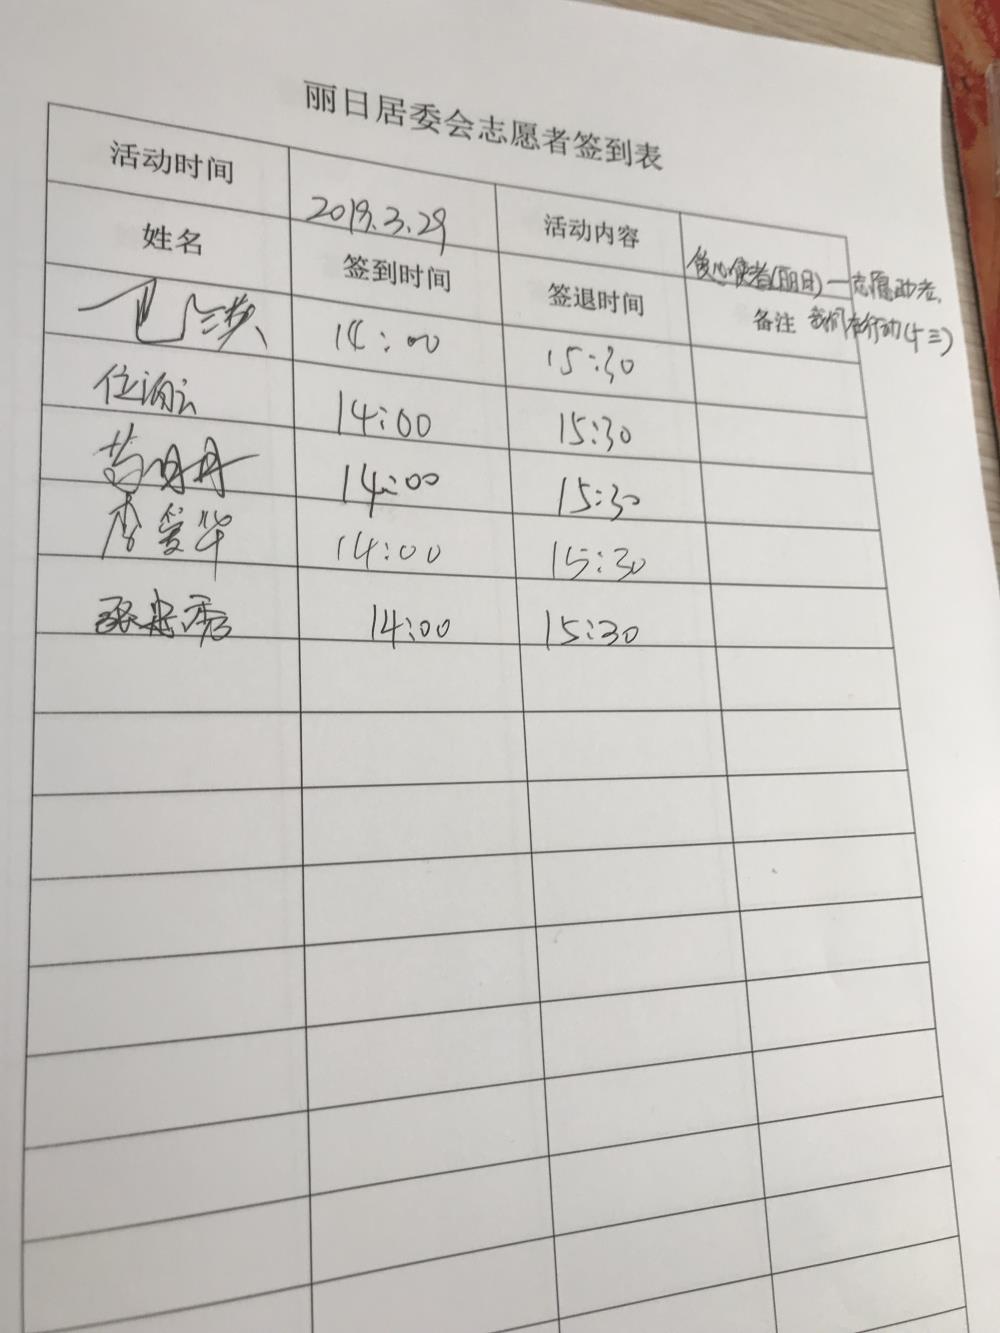 丽日居委会志愿者签到表
活动时间 2019.3.29 活动内容 爱心使者(丽日)一志愿助老,
我们在行动(十三)
姓名 签到时间 签退时间 备注
14:00 15:30
14:00 15:30
14:00 15:30
李爱华 14:00 15:30
张忠秀 14:00 15:30